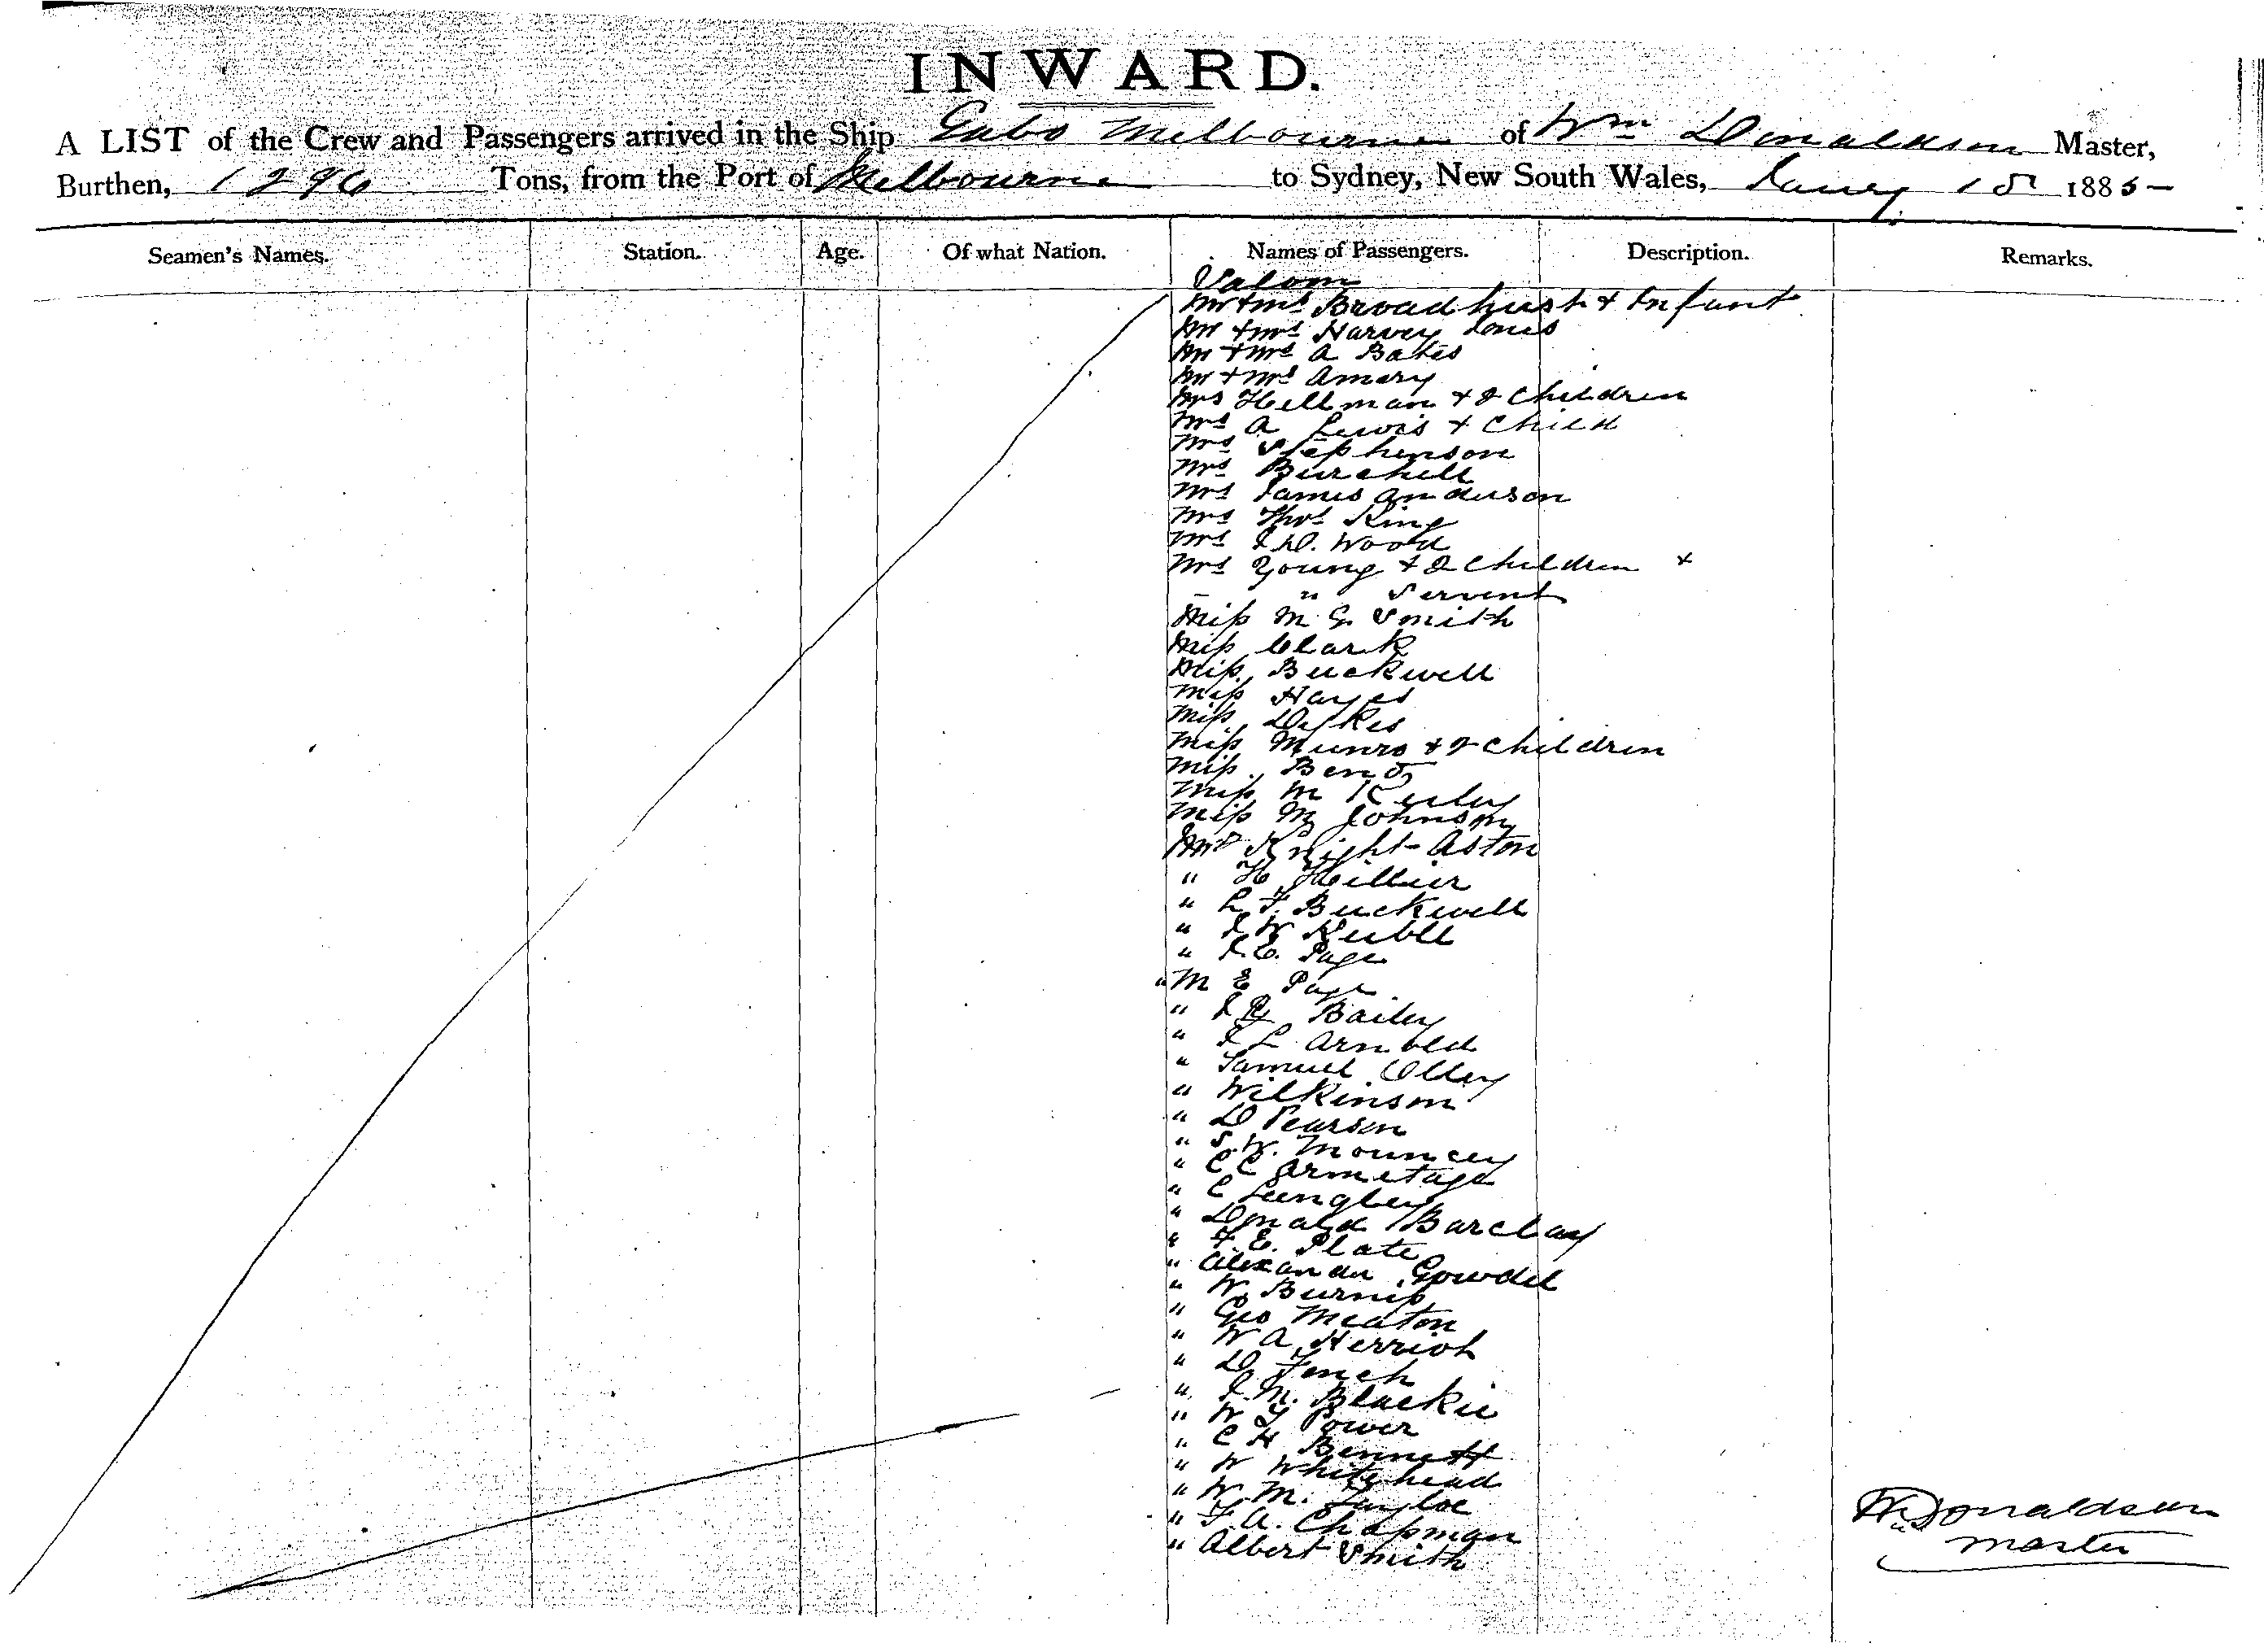 INWARD.
A LIST of the Crew and Passengers arrived in the Ship Gabo Melbourne of Wm Donaldson Master,
Burthen, 1296 Tons, from the Port of Melbourne to Sydney, New South Wales, 1885
Seamen's Names. Station. Age. Of what Nation. Names of Passengers. Description. Remarks.
Saloon
Mr + Mrs Broadhurst + Infant
Mr + Mrs Harvey Jones
Mr + Mrs A Bates
Mr + Mrs Amery
Mrs Hellman + 2 Children
Mrs A Lewis + Child
Mrs Stephenson
Mrs Burchell
Mrs James Anderson
Mrs Thos King
Mrs Wood
Mrs Young + 2 Children +
" Servent
Miss M G Smith
Miss Clark
Miss Buckwell
Miss Hayes
Miss Dykes
Miss Munro + 2 Children
Miss
Miss M
Miss M Johnson
Mr Knight-Aston
" H Hillier
" L F. Buckwell
" J W Keeble
" J. E. Page
" M E Page
" J Bailey
" J L Arnold
" Samuel Olley
" Wilkinson
" D Pearson
" S. W. Mouncey
" C C Armetage
" C Langley
" Donald Barclay
" F. E. Plate
" Alexander Gowdel
" W. Burnip
" Geo Meaton
" W A Herriot
" D Finch
" J. M. Blackie
" W Power
" C H Bennett
" W Whitehead
" W. M.
" F. A. Chapman
" Albert Smith
Wm Donaldson
Master